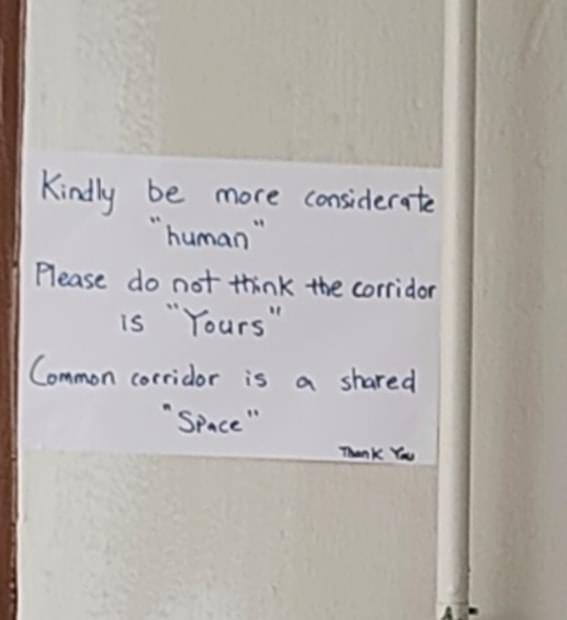 Kindly be more considerate
"human"
Please do not think the corridor
is "Yours"
Common corridor is a shared
"Space"
Thank You